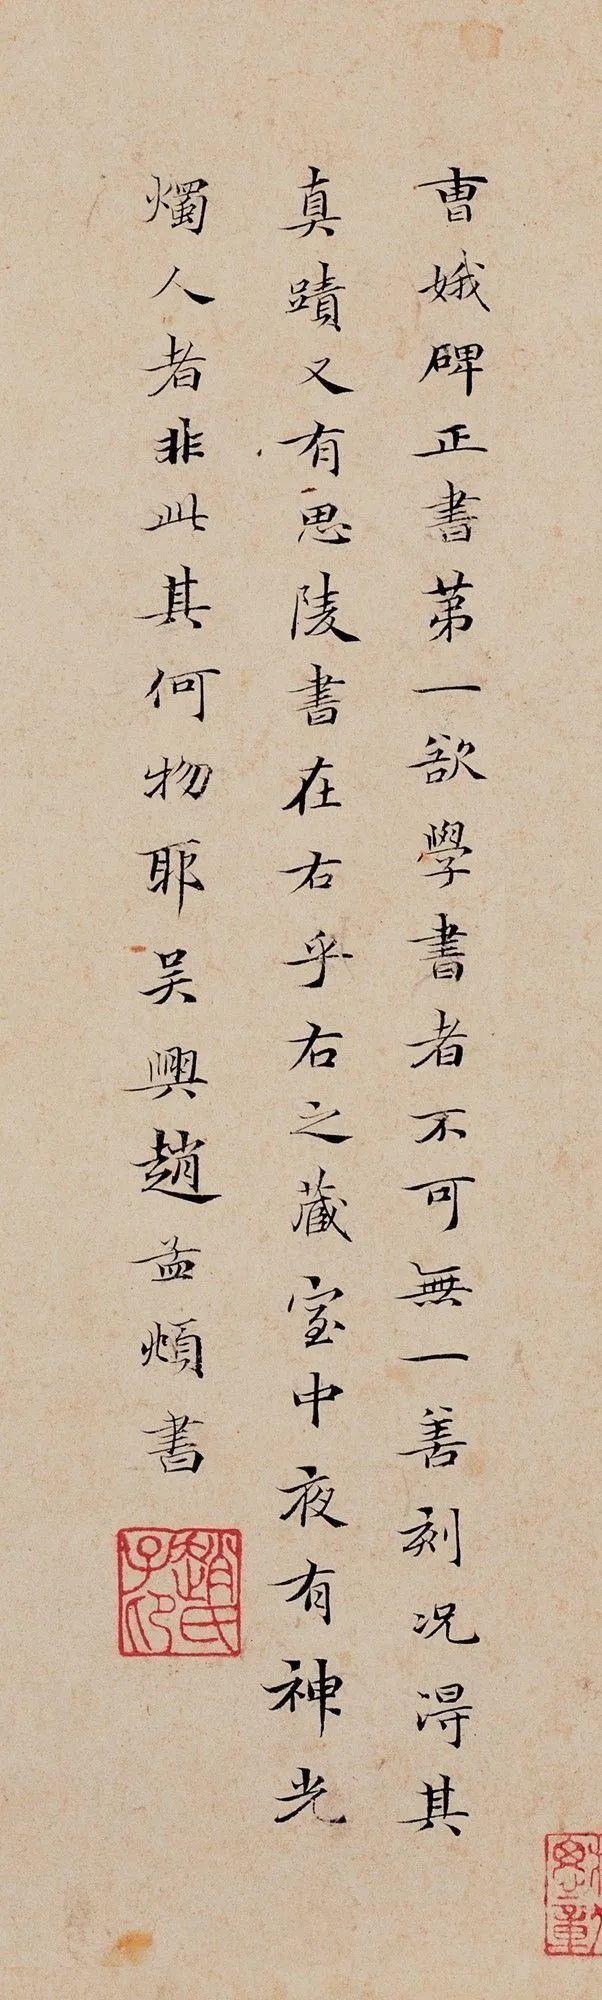 曹娥碑正書第一欲學書者不可無一善刻況得其
真蹟又有思陵書在右乎右之藏室中夜有神光
燭人者非此其何物耶吳興趙孟頫書
趙氏子印